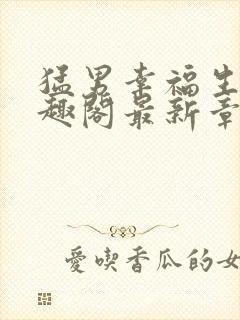 猛男幸福生
趣阁最新章
愛喫香瓜的女